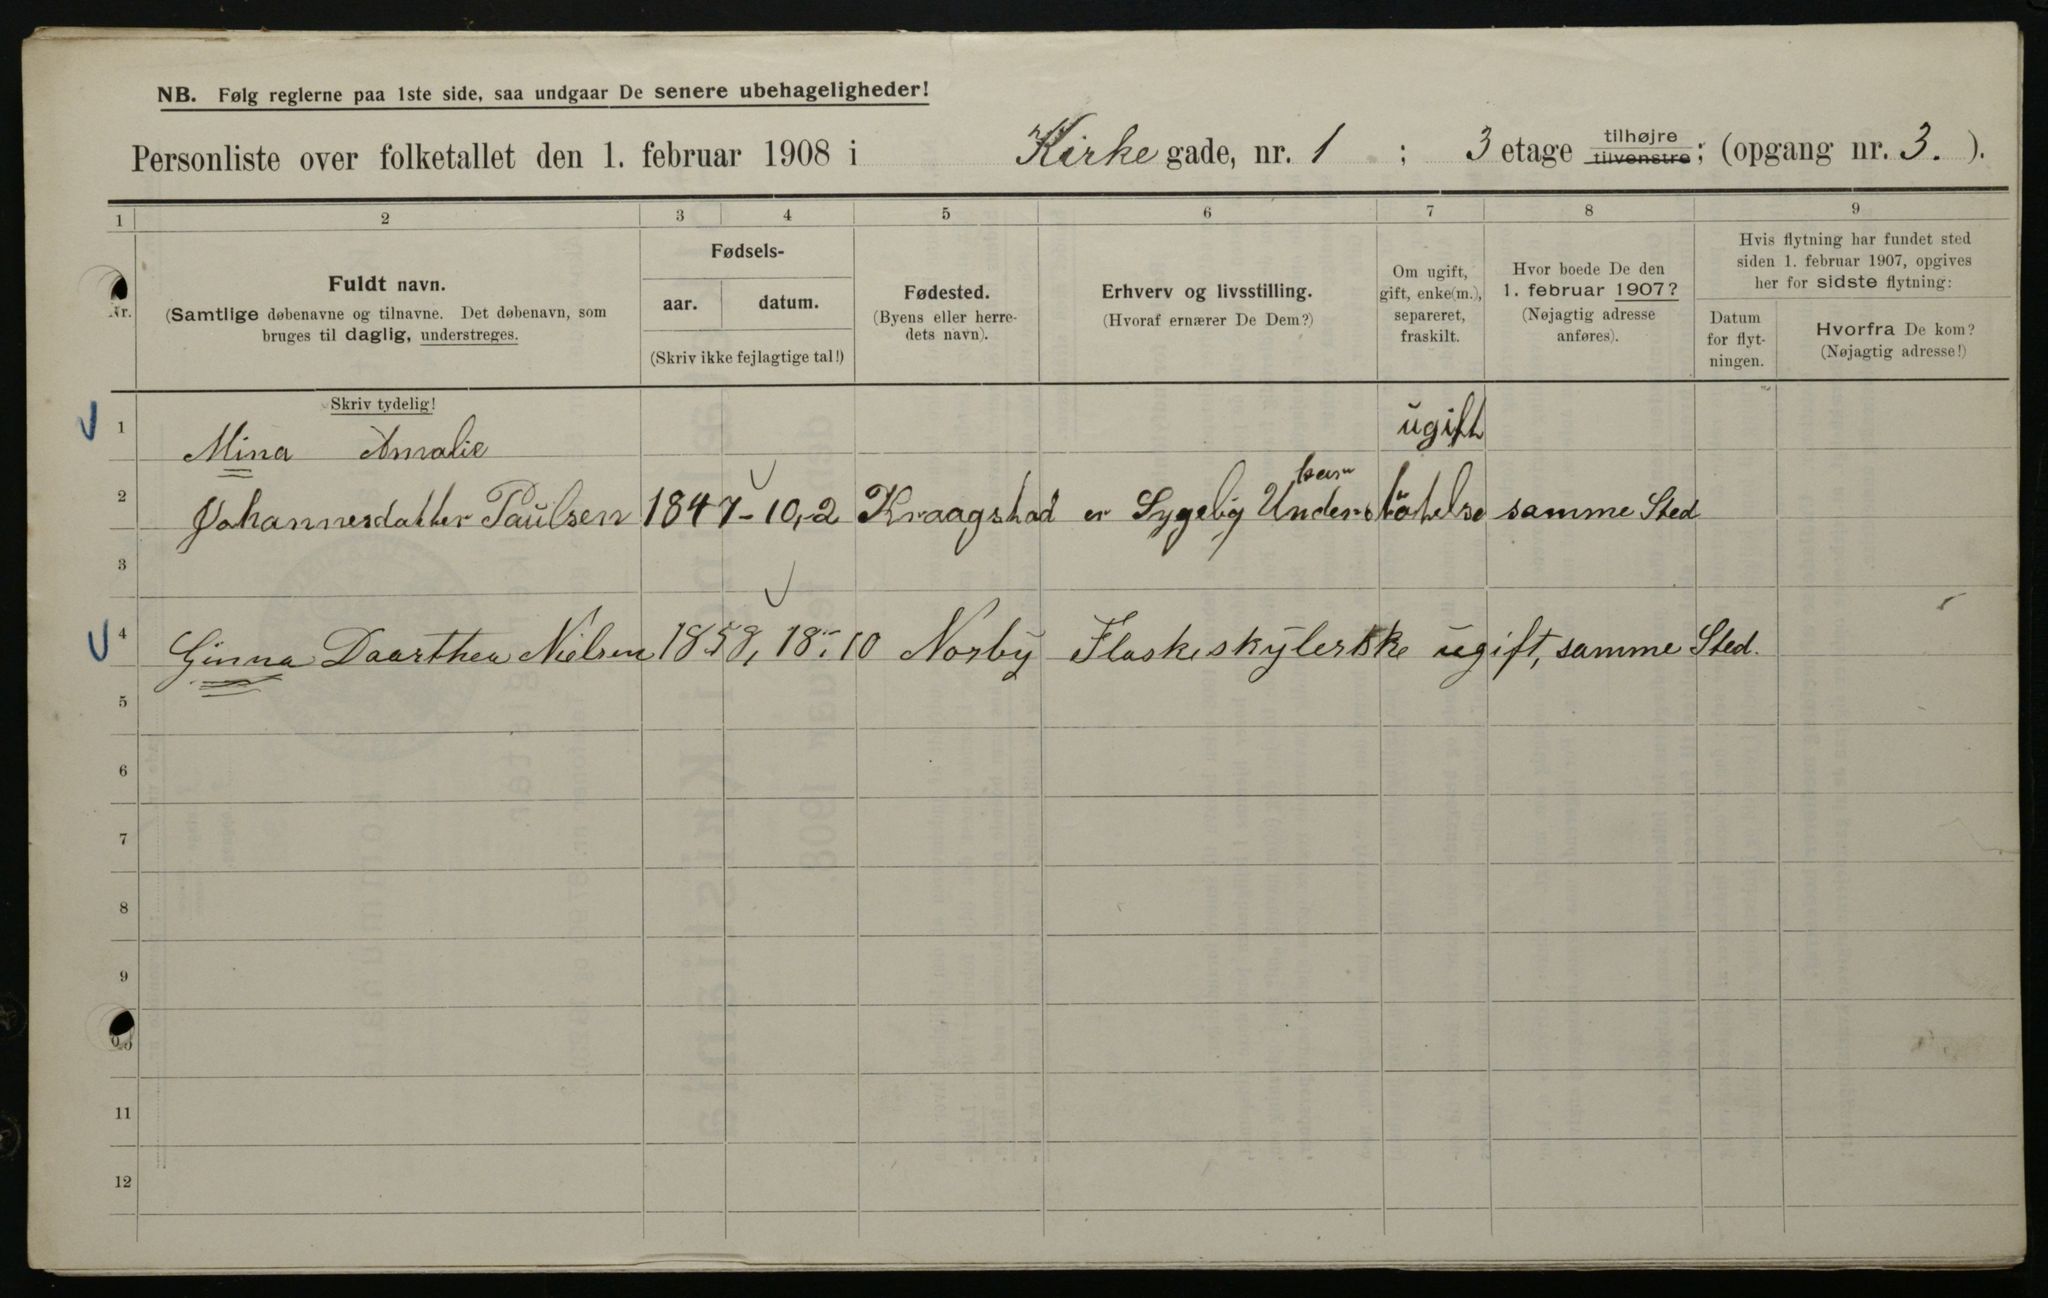 NB. Følg reglerne paa 1ste side, saa undgaar De senere ubehageligheder!
Personliste over folketallet den 1. februar 1908 i Kirke gade, nr. 1 ; 3 etage tilhøjre tilvenstre; (opgang nr. 3. ).
1 2 3 4 5 6 7 8 9
Nr.
Fuldt navn.
(Samtlige døbenavne og tilnavne. Det døbenavn, som
bruges til daglig, understreges.
Skriv tydelig!
Fødsels-
aar. datum.
(Skriv ikke fejlagtige tal!)
Fødested.
(Byens eller herre-
dets navn).
Erhverv og livsstilling.
(Hvoraf ernærer De Dem?)
Om ugift,
gift, enke(m.),
separeret,
fraskilt.
Hvor boede De den
1. februar 1907?
(Nøjagtig adresse
anføres).
Hvis flytning har fundet sted
siden 1. februar 1907, opgives
her for sidste flytning:
Datum
for flyt-
ningen.
Hvorfra De kom?
(Nøjagtig adresse!)
1 Mina Amalie ugift
2 Johannesdatter Paulsen 1847-10,-2 Kraagstad er Sygelig har Understøtelse samme Sted
3
4 Ginna Daarthea Nielsen 1858, 18-10 Norby Flaskeskylerske ugift, samme Sted.
5
6
7
8
9
10
11
12